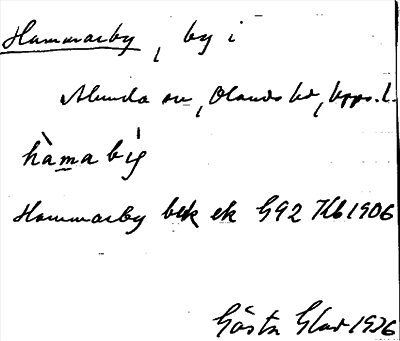 Hammarby, by i
Alunda sn, Olands hd, Upps. l.
hàmabig
Hammarby bek ek G92 Kb 1906
Gösta Glad 1936